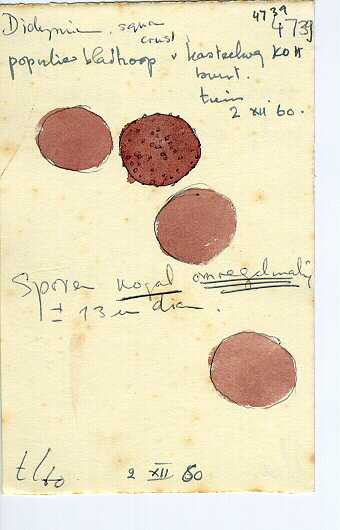 4739
Didymium squa 4739
crust
populier bladhoop v Kasteelweg KOH
buurt.
tuin
2 XII 60.
Sporen nogal onregelmatig
± 13 u diam.
2 XII 60